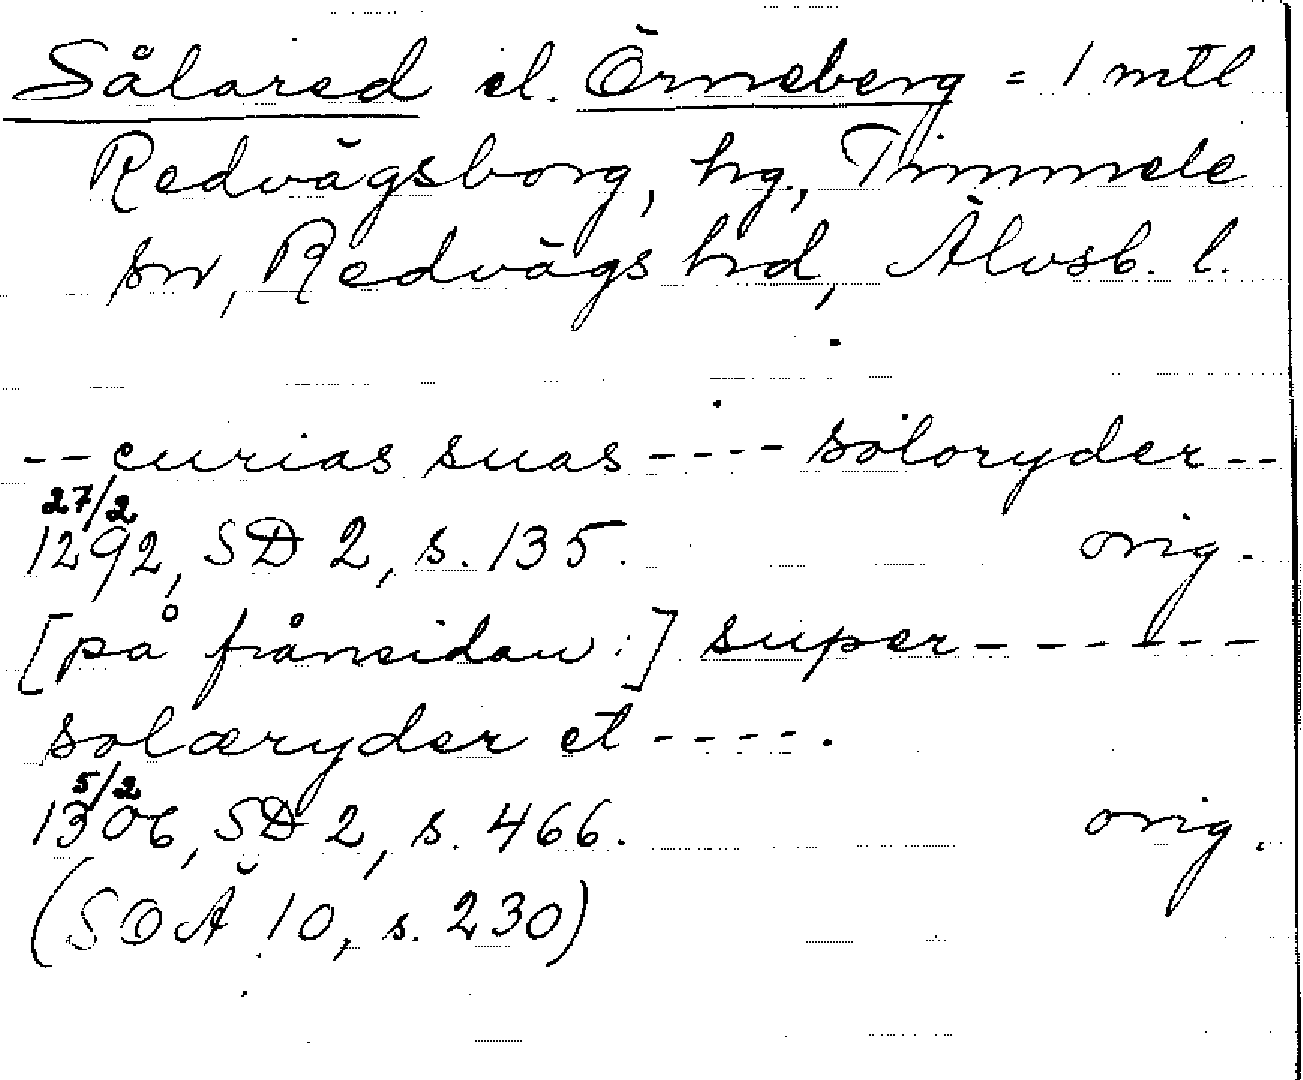 Sålared el. Örneberg = 1 mtl
Redvägsborg, hg, Timmele
sn, Redvägs hd, Älvsb. l.
-- curias suas ---- soloryder --
27/2
1292, SD 2, s. 135. orig.
[på frånsidan:] super ------
solæryder et ----.
5/2
1306, SD 2, s. 466. orig.
(SOÄ 10, s. 230)